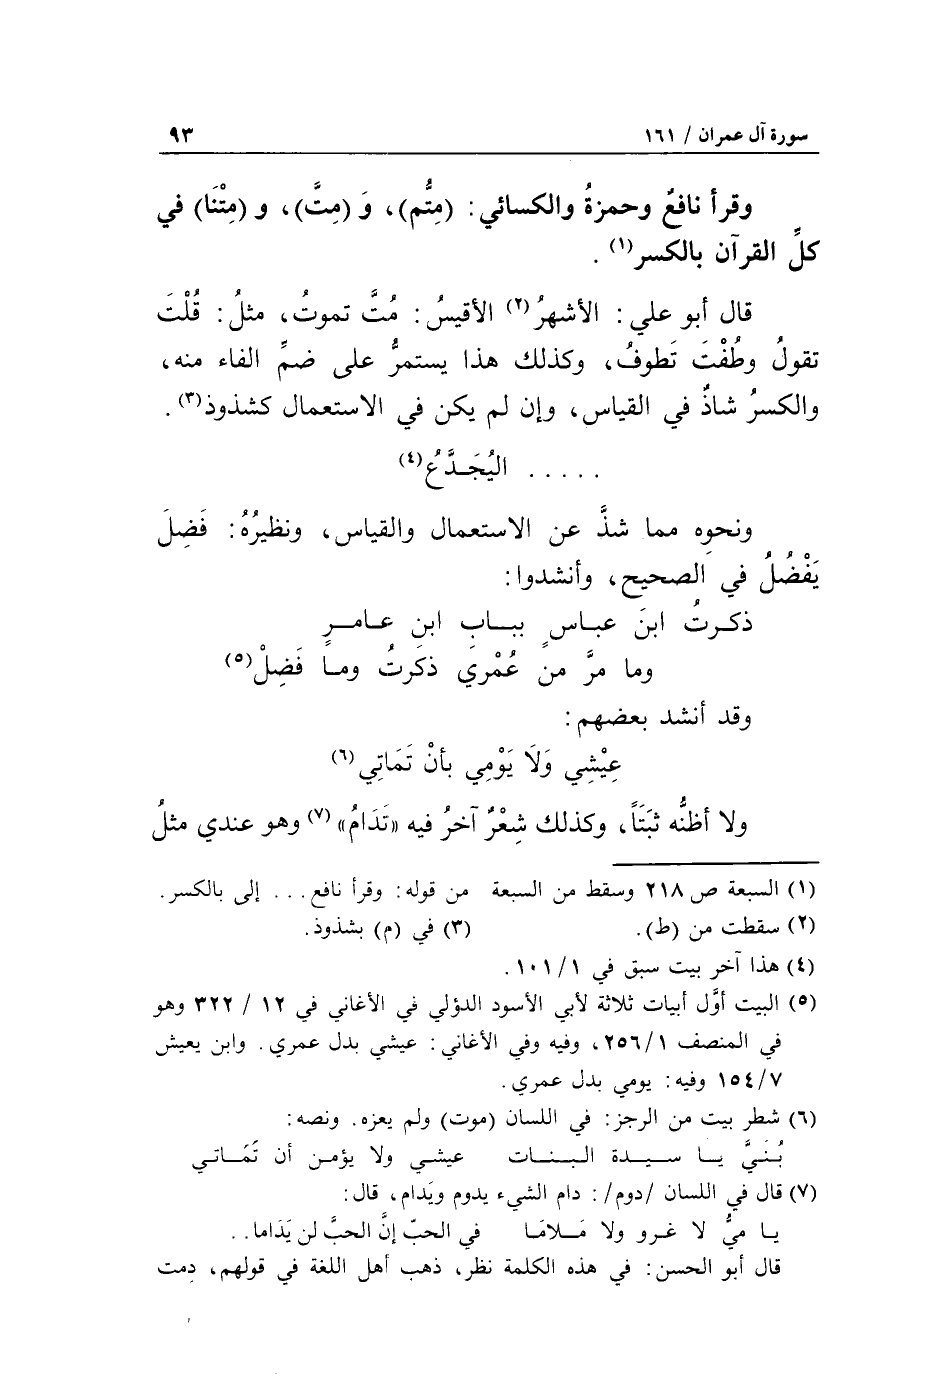 سورة آل عمران / ١٦١ ٩٣
وقرأ نافعٌ وحمزةُ والكسائي: (مِتُّم)، وَ (مِتَّ)، و (مِتْنَا) في
كلِّ القرآن بالكسر(١) .
قال أبو علي: الأشهرُ(٢) الأقيسُ: مُتَّ تموتُ، مثلُ: قُلْتَ
تقولُ وطُفْتَ تَطوفُ، وكذلك هذا يستمرُّ على ضمِّ الفاء منه،
والكسرُ شاذٌ في القياس، وإن لم يكن في الاستعمال كشذوذ(٣) .
. . . . . اليُجَدَّعُ(٤)
ونحوِه مما شذَّ عن الاستعمال والقياس، ونظيرُهُ: فَضِلَ
يَفْضُلُ في الصحيح، وأنشدوا:
ذكرتُ ابنَ عباسٍ ببابِ ابن عامرٍ
وما مرَّ من عُمْرِي ذكَرتُ وما فَضِلْ(٥)
وقد أنشد بعضهم:
عِيْشِي وَلَا يَوْمِي بأنْ تَمَاتِي(٦)
ولا أظنُّه ثبَتَاً، وكذلك شِعْرٌ آخرُ فيه «تَدَامُ»(٧) وهو عندي مثلُ
(١) السبعة ص ٢١٨ وسقط من السبعة من قوله: وقرأ نافع... إلى بالكسر.
(٢) سقطت من (ط). (٣) في (م) بشذوذ.
(٤) هذا آخر بيت سبق في ١٠١/١ .
(٥) البيت أوَّل أبيات ثلاثة لأبي الأسود الدؤلي في الأغاني في ١٢ / ٣٢٢ وهو
في المنصف ٢٥٦/١، وفيه وفي الأغاني: عيشي بدل عمري. وابن يعيش
١٥٤/٧ وفيه: يومي بدل عمري.
(٦) شطر بيت من الرجز: في اللسان (موت) ولم يعزه. ونصه:
بُنَيَّ يا سيدة البنات عيشي ولا يؤمن أن تَمَاتي
(٧) قال في اللسان /دوم/: دام الشيء يدوم ويَدام، قال:
يا ميُّ لا غرو ولا مَلامَا في الحبّ إنَّ الحبَّ لن يَدَاما..
قال أبو الحسن: في هذه الكلمة نظر، ذهب أهل اللغة في قولهم، دِمت